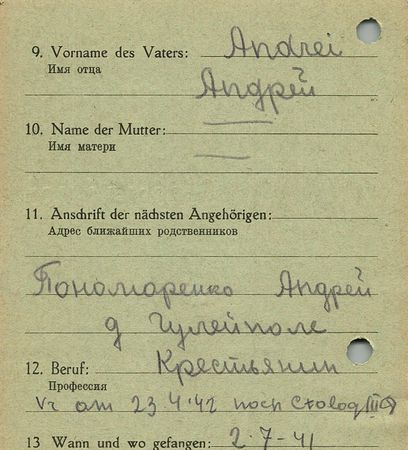 9. Vorname des Vaters: Andrei
Имя отца
Андрей
10. Name der Mutter: —
Имя матери
—
11. Anschrift der nächsten Angehörigen:
Адрес ближайших родственников
Пономаренко Андрей
д Гулейполе
12. Beruf: Крестьянин
Профессия
Vr am 23 4.42 nach Stalag III
13 Wann und wo gefangen: 2.7-41